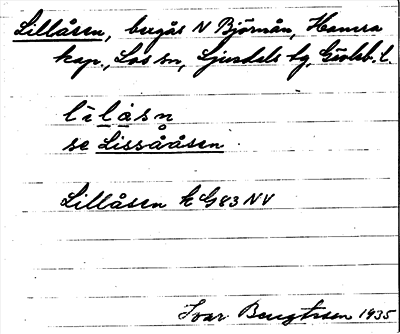 Lillåsen, bergås N Björnån, Hamra
kap., Los sn, Ljusdals tg, Gävleb. l.
lìlåsn
se Lissååsen.
Lillåsen k G83 NV
Ivar Bengtsson 1935